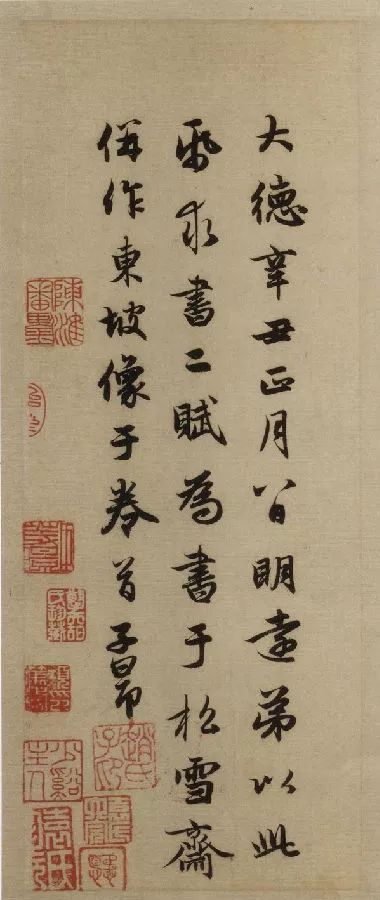 大德辛丑正月八日明遠弟以此
帋求書二賦為書于松雪齋
併作東坡像于卷首子昂
趙氏子昂
陳淮